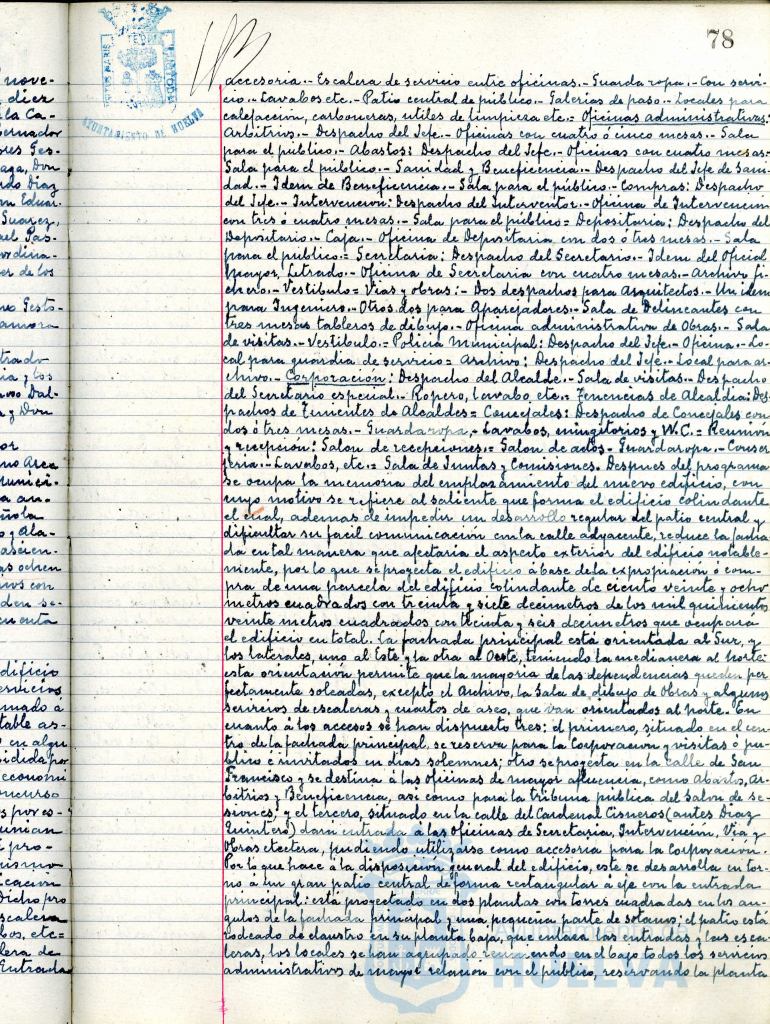 78
nove-
diez
la Ca-
bernador
ores Ges-
aga, Don
ndo Diaz
n Eduar-
Suarez,
ael Pas-
ordina-
er de los
mo Gesto-
amora
trado
ia y los
y Don
or
no Area
munici-
a an-
ñola
o y Ala-
as ochen
ivos con
den se-
cuenta
dificio
ervicios
mado á
table as-
o en algu
cidida por
economi
oncurso
os por es-
i pro-
nismo
icacion
Dicho pro
scalera
bos, etc=
lera de
Entrada
AYUNTAMIENTO DE HUELVA
accesoria.- Escalera de servicio entre oficinas.- Guarda ropa.- Con servi-
cio.- Lavabos etc.- Patio central de público.- Galerias de paso.- Locales para
calefacción, carboneras, utiles de limpieza etc.= Oficinas administrativas:
Arbitrios.- Despacho del Jefe.- Oficinas con cuatro ó cinco mesas.- Sala
para el publico.- Abastos: Despacho del Jefe.- Oficinas con cuatro mesas.-
Sala para el público.- Sanidad y Beneficencia.- Despacho del Jefe de Sani-
dad.- Idem de Beneficencia.- Sala para el público.- Compras: Despacho
del Jefe.- Intervencion: Despacho del Interventor.- Oficina de Intervencion
con tres ó cuatro mesas.- Sala para el público= Depositaria: Despacho del
Depositario.- Caja.- Oficina de Depositaria con dos ó tres mesas.- Sala
para el publico.= Secretaria: Despacho del Secretario.- Idem del Oficial
Mayor, Letrado.- Oficina de Secretaria con cuatro mesas.- Archivo fi-
chero.- Vestibulo= Vias y obras:- Dos despachos para Arquitectos.- Un idem
para Ingeniero.- Otros dos para Aparejadores.- Sala de Delineantes con
tres mesas tableros de dibujo.- Oficina administrativa de Obras.- Sala
de visitas.- Vestibulo.= Policia Municipal: Despacho del Jefe.- Oficina.- Lo-
cal para guardia de servicio= Archivo: Despacho del Jefe.- Local para ar-
chivo.- Corporación: Despacho del Alcalde.- Sala de visitas.- Despacho
del Secretario especial.- Ropero, lavabo, etc.= Tenencias de Alcaldia: Des-
pachos de Tenientes de Alcaldes= Concejales: Despacho de Concejales con
dos ó tres mesas.- Guardaropa,- Lavabos, mingitorios y W.C.= Reunión
y recepción: Salon de recepciones.= Salon de actos.- Guardaropa.- Conser
jeria.- Lavabos, etc.= Sala de Juntas y Comisiones. Despues del programa
se ocupa la memoria del emplazamiento del nuevo edificio, con
cuyo motivo se refiere al saliente que forma el edificio colindante
el cual, ademas de impedir un desarrollo regular del patio central y
dificultar su facil comunicación con la calle adyacente, reduce la facha
da en tal manera que afectaria el aspecto exterior del edificio notable-
mente, por lo que se proyecta el edificio á base de la expropiación ó com-
pra de una parcela del edificio colindante de ciento veinte y ocho
metros cuadrados con treinta y siete decimetros de los mil quinientos
veinte metros cuadrados con treinta y seis decimetros que ocupará
el edificio en total. La fachada principal está orientada al Sur, y
los laterales, uno al Este y la otra al Oeste, teniendo la medianera al Norte:
esta orientación permite que la mayoria de las dependencias queden per
fectamente soleadas, excepto el Archivo, la Sala de dibujo de Obras y algunos
servicios de escaleras y cuartos de aseo, que van orientados al norte. En
cuanto á los accesos se han dispuesto tres: el primero, situado en el cen-
tro de la fachada principal, se reserva para la Corporacion y visitas ó pu-
blico é invitados en dias solemnes; otro se proyecta en la calle de San
Francisco y se destina á las oficinas de mayor afluencia, como Abastos, Ar-
bitrios y Beneficencia, asi como para la tribuna publica del Salon de se-
siones; y el tercero, situado en la calle del Cardenal Cisneros (antes Diaz
Quintero) dará entrada á las Oficinas de Secretaria, Intervencion, Via y
Obras etcetera, pudiendo utilizarse como accesoria para la Corporacion.
Por lo que hace á la disposicion general del edificio, este se desarrolla en tor-
no á un gran patio central de forma rectangular á eje con la entrada
principal: está proyectado en dos plantas con torres cuadradas en los an-
gulos de la fachada principal y una pequeña parte de sotanos; el patio está
rodeado de claustro en su planta baja, que enlaza las entradas y las esca-
leras, los locales se han agrupado reuniendo en el bajo todos los servicios
administrativos de mayor relacion con el publico, reservando la planta
Ayuntamiento de
HUELVA